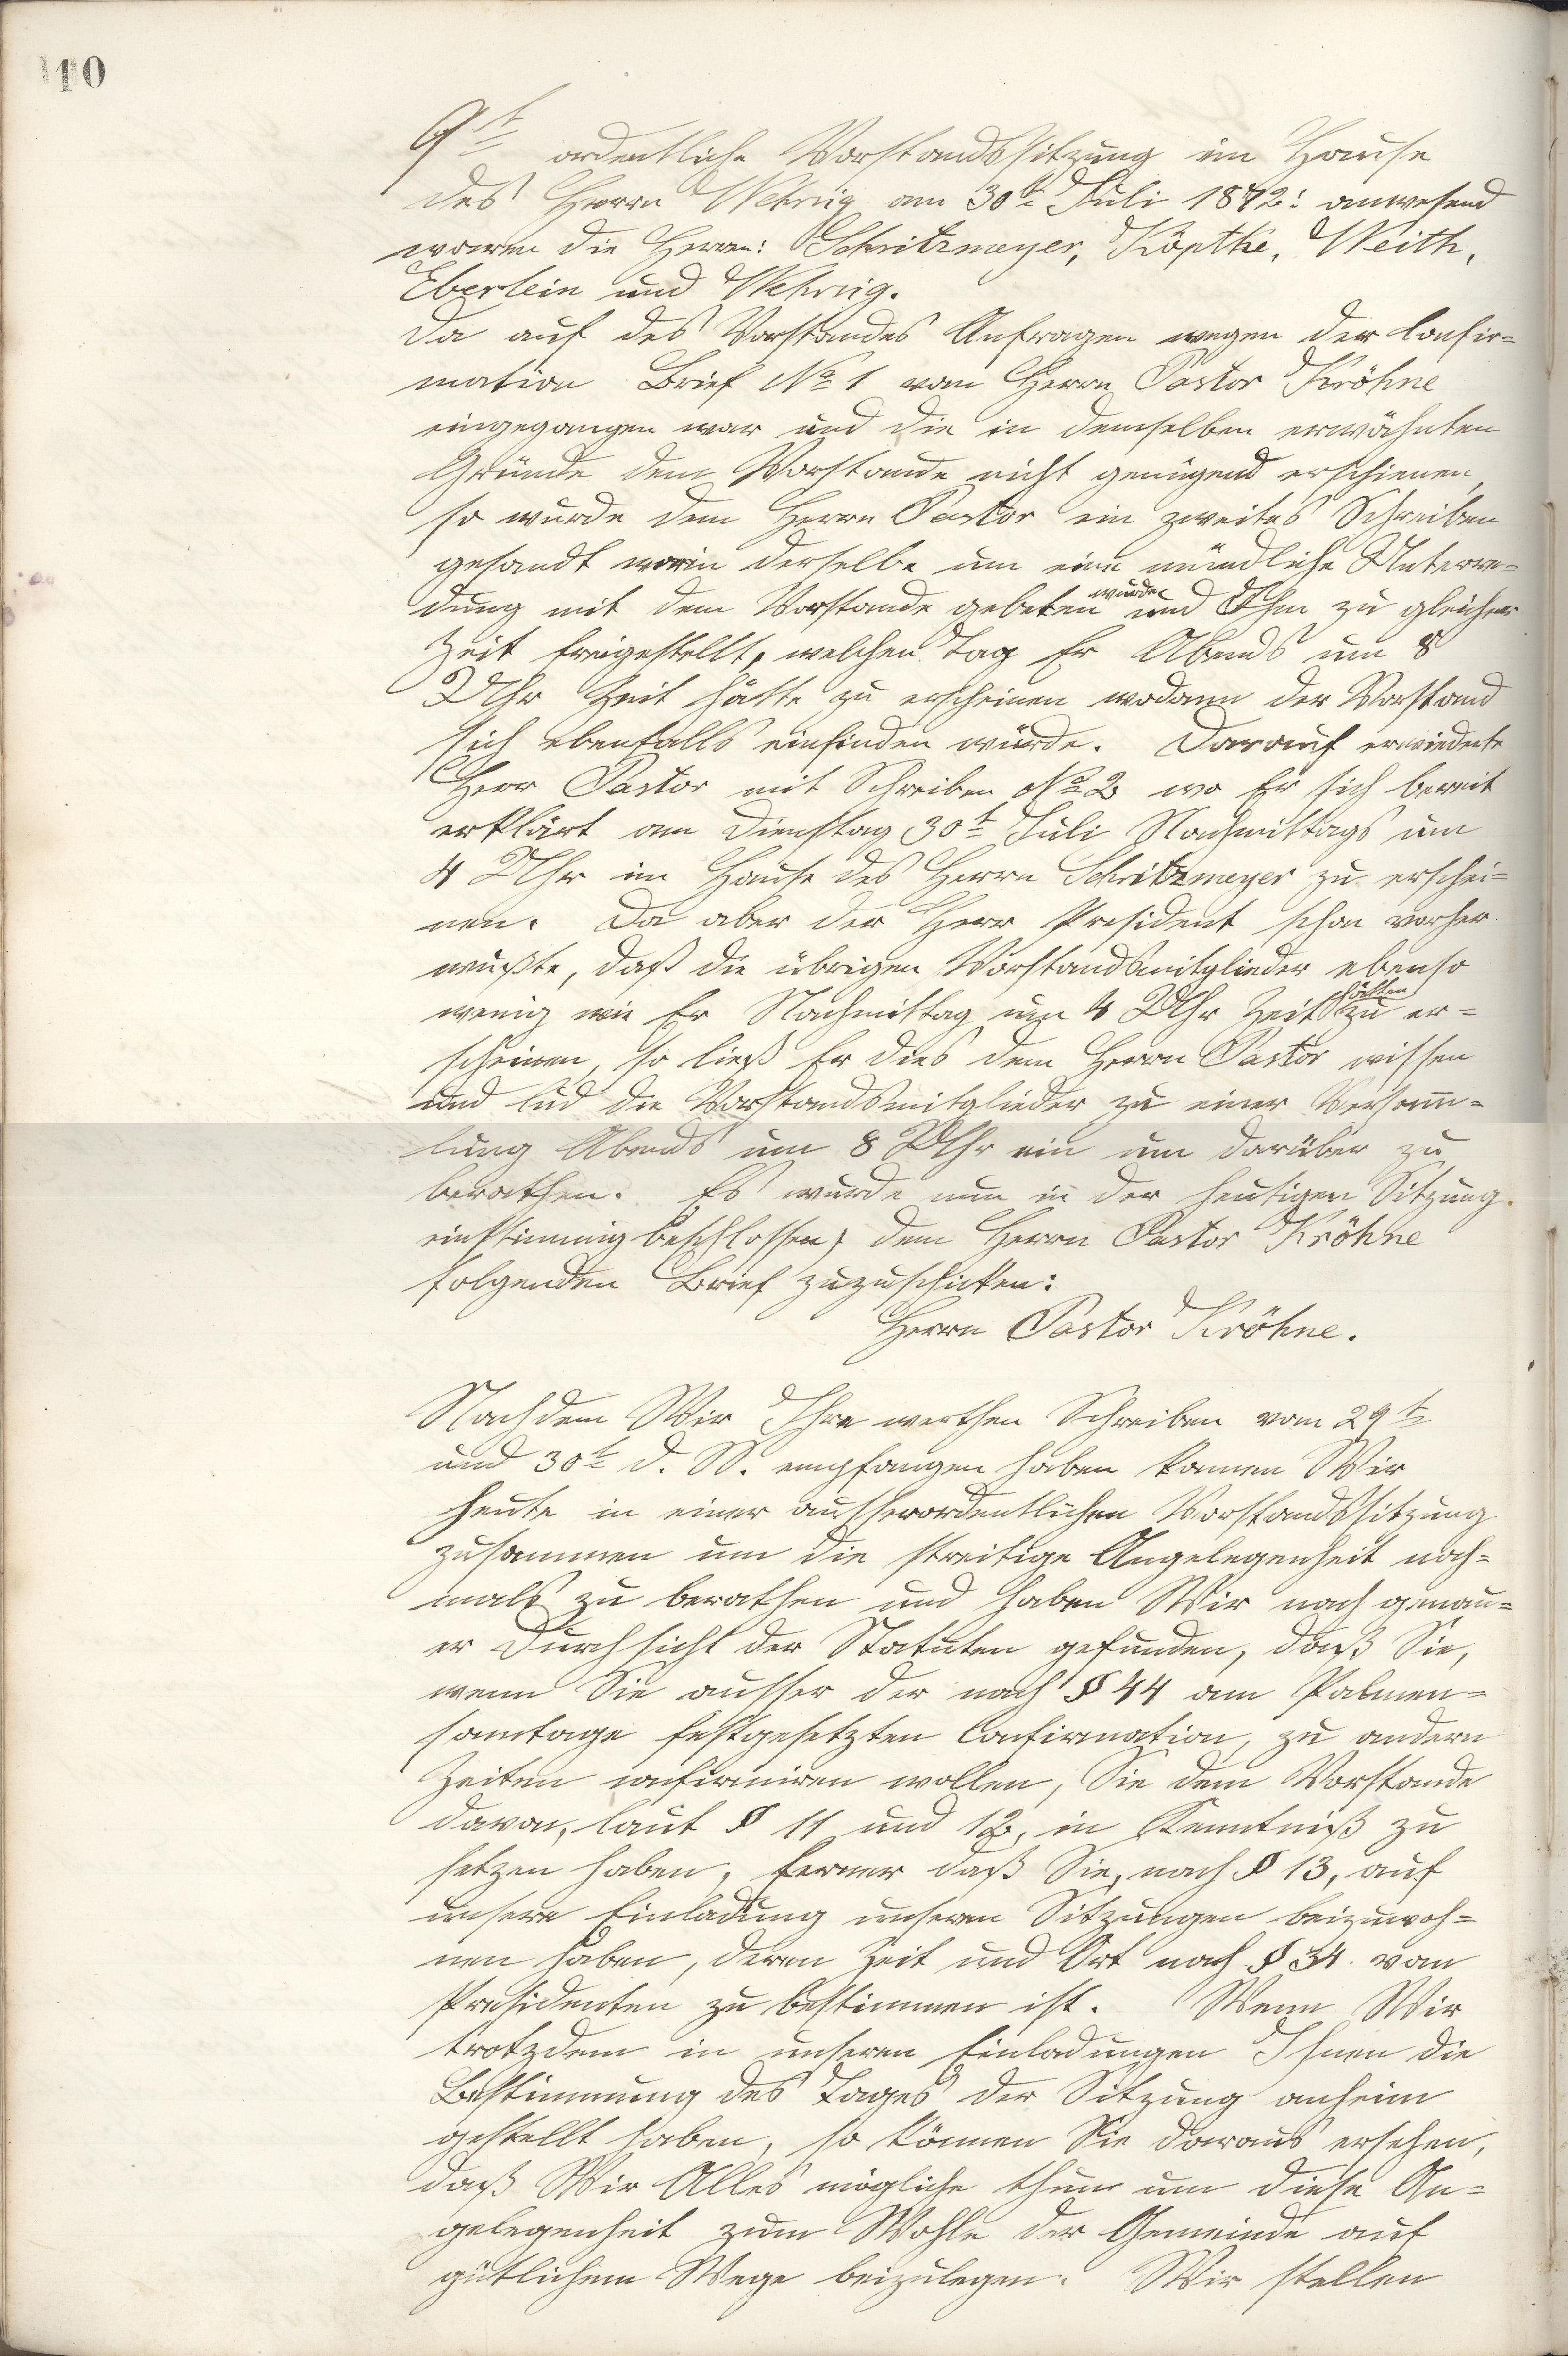 10
9te ordentliche Vorstandssitzung im Hause
des Herrn Wehrig am 30te Juli 1872: anwesend
waren die Herren: Schritzmeyer, Köpthe, Weith,
Eberlein und Wehrig.
Da auf des Vorstandes Anfragen wegen der Confir-
mation Brief No 1 vom Herrn Pastor Kröhne
eingegangen war und die in demselben erwähnten
Gründe dem Vorstande nicht genügend erschienen,
so wurde dem Herrn Pastor ein zweites Schreiben
gesandt worin derselbe um eine mündliche Unterre-
dung mit dem Vorstande gebeten wurde und Ihm zu gleicher
Zeit freigestellt, welchen Tag Er Abends um 8
Uhr Zeit hätte zu erscheinen wodann der Vorstand
sich ebenfalls einfinden würde. Darauf erwiederte
Herr Pastor mit Schreiben No 2 wo Er sich bereit
erklärt am Dienstag 30t Juli Nachmittags um
4 Uhr im Hause des Herrn Schritzmeyer zu erschei-
nen. Da aber der Herr President schon vorher
wußte, daß die übrigen Vorstandsmitglieder ebenso
wenig wie Er Nachmittag um 4 Uhr Zeit hätten zu er-
scheinen, so ließ Er dies dem Herrn Pastor wissen
und lud die Vorstandsmitglieder zu einer Versamm-
lung Abends um 8 Uhr ein um darüber zu
berathen. Es wurde nun in der heutigen Sitzung
einstimmig beschlossen, dem Herrn Pastor Kröhne
folgenden Brief zuzuschicken:
Herrn Pastor Kröhne.
Nachdem Wir Ihre werthen Schreiben vom 29t
und 30t d. M. empfangen haben kamen Wir
heute in einer ausserordentlichen Vorstandssitzung
zusammen um die streitige Angelegenheit noch-
mals zu berathen und haben Wir nach genau-
er Durchsicht der Statuten gefunden, daß Sie,
wenn Sie ausser der nach § 44 am Palmen-
sonntage festgesetzten Confirmation, zu andern
Zeiten confirmiren wollen, Sie dem Vorstande
davon, laut § 11 und 12, in Kenntniß zu
setzen haben, ferner daß Sie, nach § 13, auf
unsere Einladung unseren Sitzungen beizuwoh-
nen haben, deren Zeit und Ort nach § 34 vom
Presidenten zu bestimmen ist. Wenn Wir
trotzdem in unseren Einladungen Ihnen die
Bestimmung des Tages der Sitzung anheim
gestellt haben, so können Sie daraus ersehen,
daß Wir Alles mögliche thun um diese An-
gelegenheit zum Wohle der Gemeinde auf
gütlichem Wege beizulegen. Wir stellen